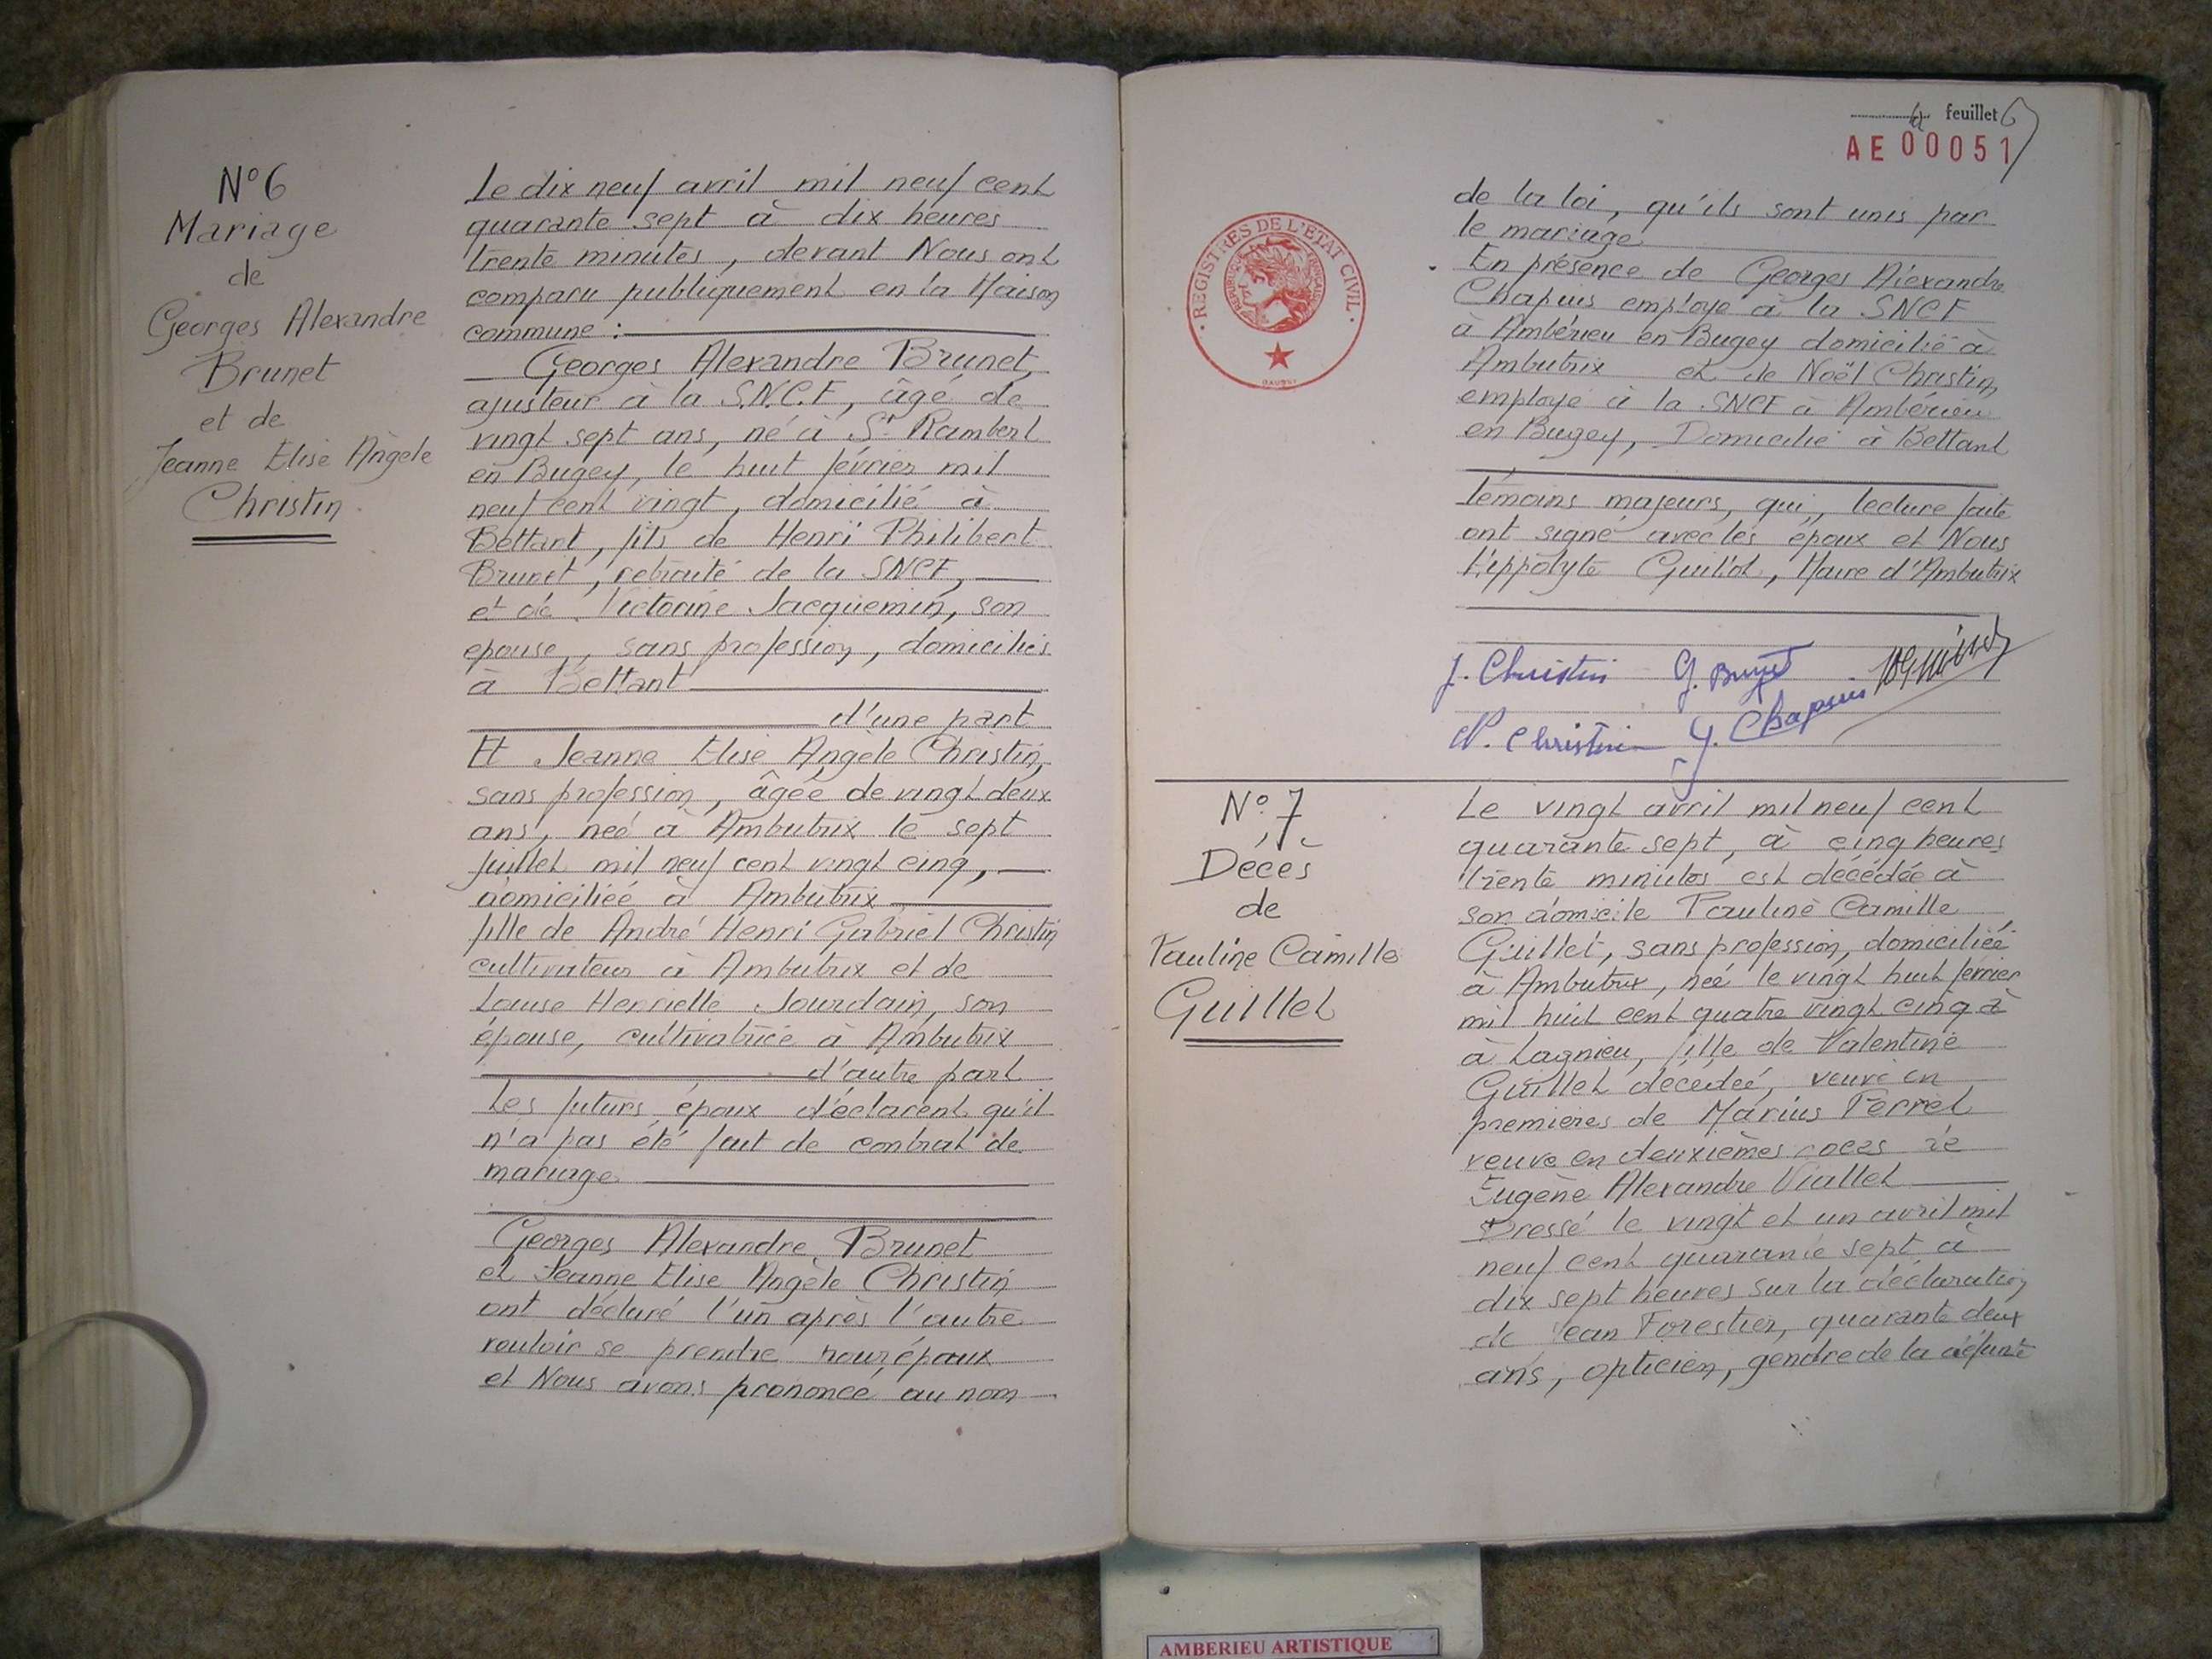 N° 6
Mariage
de
Georges Alexandre
Brunet
et de
Jeanne Elise Angèle
Christin
Le dix neuf avril mil neuf cent
quarante sept à dix heures
trente minutes, devant Nous ont
comparu publiquement en la Maison
commune :
Georges Alexandre Brunet,
ajusteur à la S.N.C.F, âgé de
vingt sept ans, né à St Rambert
en Bugey, le huit février mil
neuf cent vingt, domicilié à
Bettant, fils de Henri Philibert
Brunet, retraité de la SNCF,
et de Victorine Jacquemin, son
epouse, sans profession, domiciliés
à Bettant
d'une part
Et Jeanne Elise Angèle Christin,
sans profession, âgée de vingt deux
ans, neé à Ambutrix le sept
juillet mil neuf cent vingt cinq,
domiciliée à Ambutrix
fille de André Henri Gabriel Christin
cultivateur à Ambutrix et de
Louise Henriette Jourdain, son
épouse, cultivatrice à Ambutrix
d'autre part
Les futurs époux déclarent qu'il
n'a pas été fait de contrat de
mariage
Georges Alexandre Brunet
et Jeanne Elise Angèle Christin
ont déclaré l'un après l'autre
vouloir se prendre pour époux
et Nous avons prononcé au nom
feuillet 6
AE 00051
REGISTRES DE L'ETAT CIVIL
de la loi, qu'ils sont unis par
le mariage
En présence de Georges Alexandre
Chapuis employé à la SNCF
à Ambérieu en Bugey domicilié à
Ambutrix et de Noël Christin,
employé à la SNCF à Ambérieu
en Bugey, Domicilié à Bettant
témoins majeurs, qui, lecture faite
ont signé avec les époux et Nous
Hippolyte Guillot, Maire d'Ambutrix
J. Christin G. Brunet
N. Christin G. Chapuis
N° 7
Décès
de
Pauline Camille
Guillet
Le vingt avril mil neuf cent
quarante sept, à cinq heures
trente minutes est décédée à
son domicile Pauline Camille
Guillet, sans profession, domiciliée
à Ambutrix, neé le vingt huit février
mil huit cent quatre vingt cinq à
à Lagnieu, fille de Valentine
Guillet décedeé, veuve en
premieres de Marius Perret
veuve en deuxièmes noces de
Eugène Alexandre Viallet
Dressé le vingt et un avril mil
neuf cent quarante sept à
dix sept heures sur la déclaration
de Jean Forestier, quarante deux
ans, opticien, gendre de la défunte
AMBERIEU ARTISTIQUE